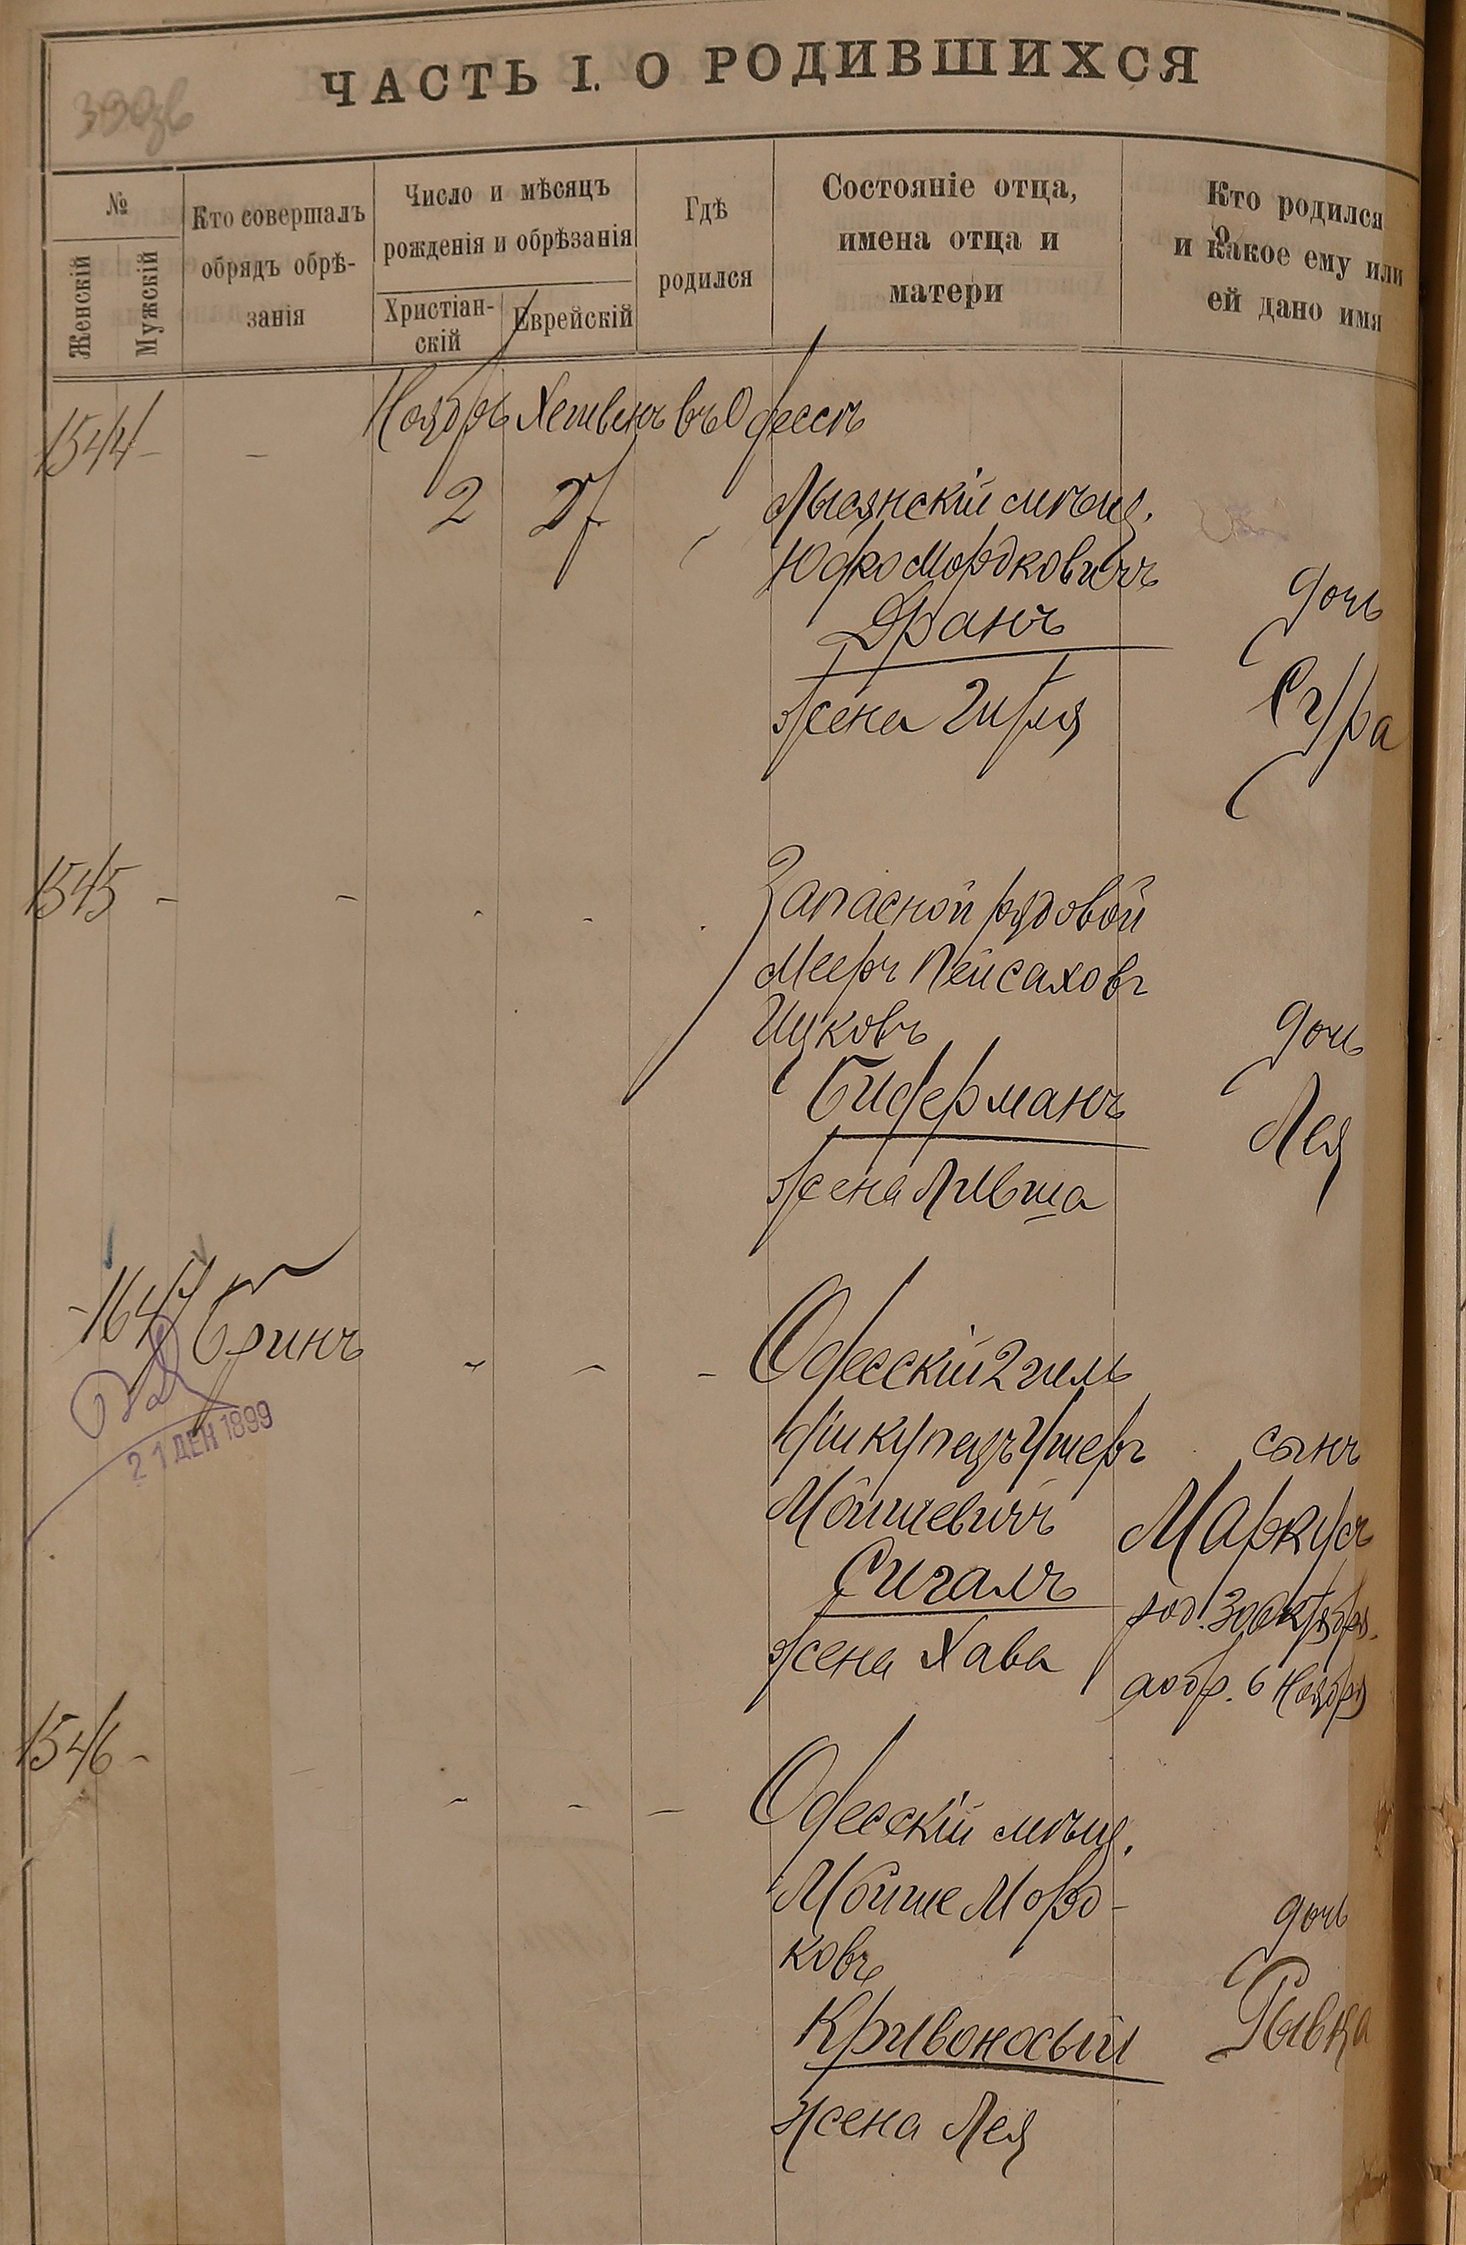 ЧАСТЬ I. О РОДИВШИХСЯ
№
Женскій
Мужскій
Кто совершалъ
обрядъ обрѣ-
занія
Число и мѣсяцъ
рожденія и обрѣзанія
Христіан-
скій
Еврейскій
Гдѣ
родился
Состояніе отца,
имена отца и
матери
Кто родился
и какое ему или
ей дано имя
Ноябрь Хешвенъ въ Одессѣ
1544 -
2
Лысянскій мѣщ.
Юфко Мордковичъ
Дранъ
жена Гитля
дочь
Сура
1545 -
Запасной рядовой
Мееръ Пейсаховъ
Ицковъ
Бидерманъ
жена Ливша
дочь
Лея
- 1647 Бринъ
21 ДЕК 1899
Одесскій 2 гиль
діи купецъ Ушеръ
Мошкевичъ
Сигалъ
жена Хава
сынъ
Маркусъ
род. 30 Октября
а обр. 6 Ноября
1546 -
Одесскій мѣщ.
Мойше Морд-
ковъ
Кривоносый
жена Лея
дочь
Рывка